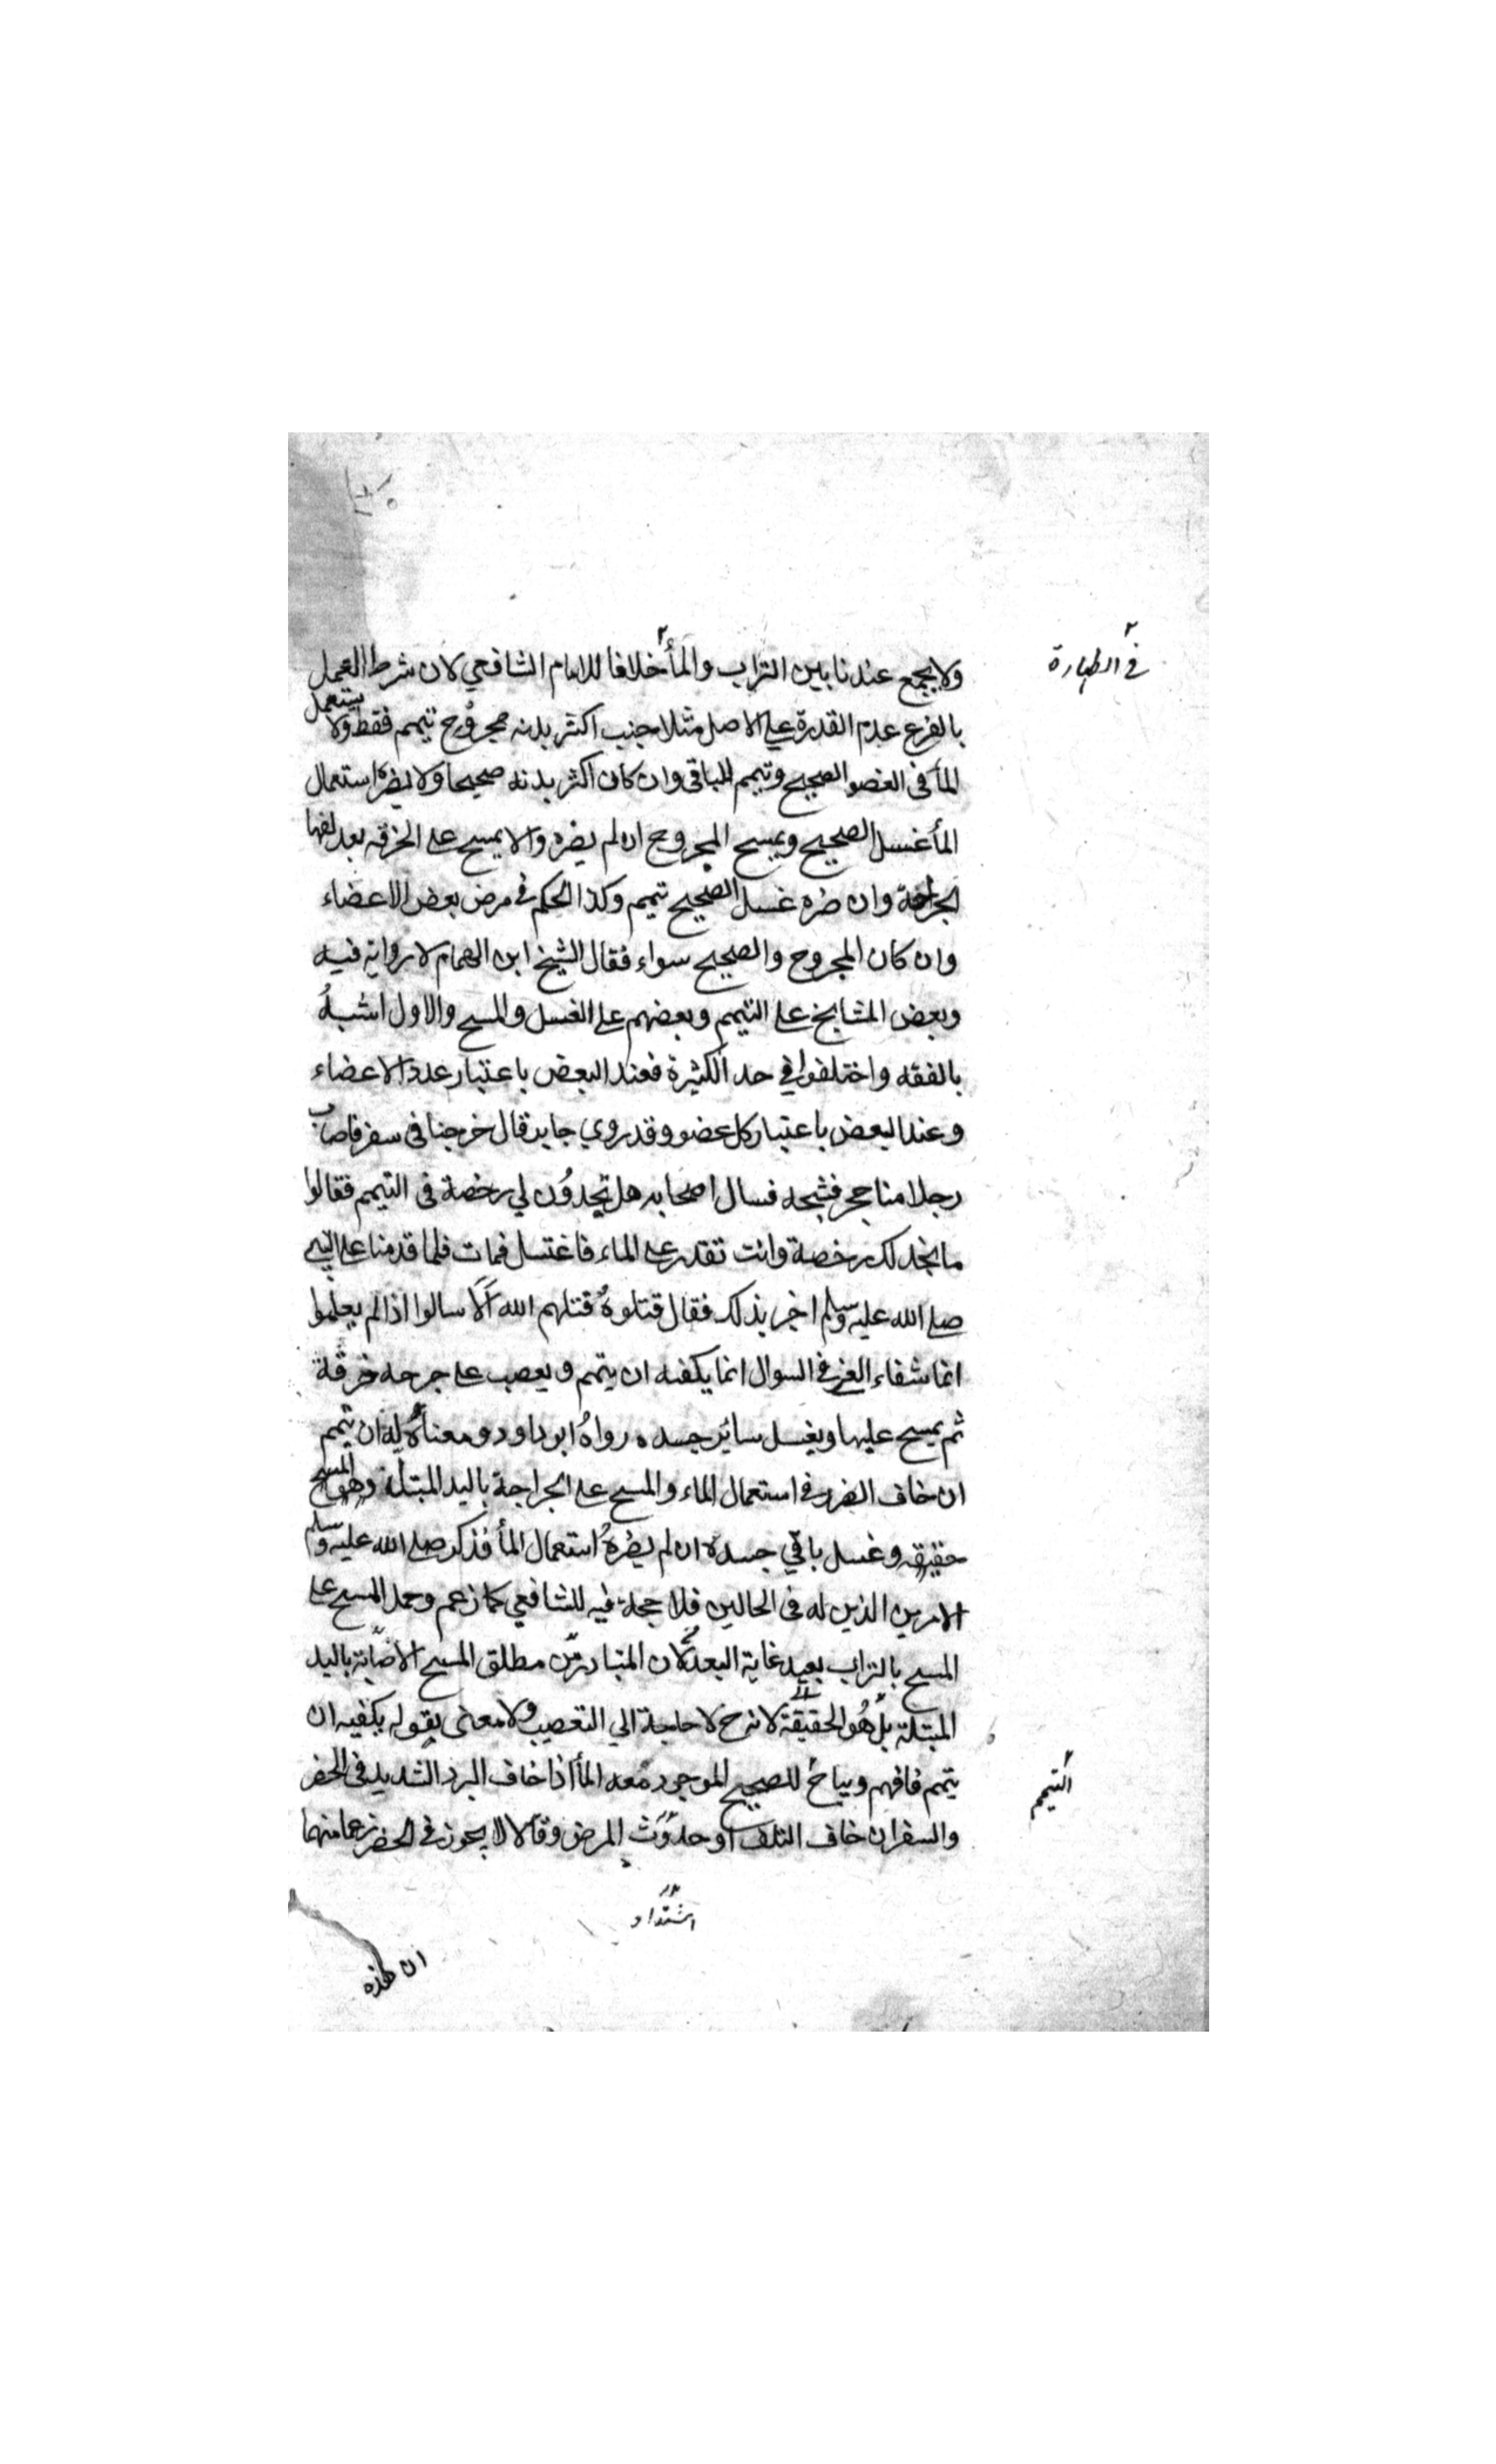 ولا يجمع عندنا بين التراب والمأ خلافا للامام الشافعي لان شرط العمل
في الطهارة
بالفرع عدم القدرة علي الاصل مثلا جنب اكثر بدنه مجروح تيمم فقط ولا يستعمل
المأ في العضو الصحيح وتيمم للباقي وان كان اكثر بدنه صحيحا ولا يضره استعمال
المأ غسل الصحيح ويمسح المجروح ان لم يضره والا يمسح علي الخرقه بعد لفها
الجراحة وان ضره غسل الصحيح تيمم وكذا الحكم في مرض بعض الاعضاء
وان كان المجروح والصحيح سواء فقال الشيخ ابن الهمام لا رواية فيه
وبعض المشايخ علي التيمم وبعضهم علي الغسل والمسح والاول اشبهُ
بالفقه واختلفوا في حد الكثيرة فعند البعض باعتبار عدد الاعضاء
وعند البعض باعتبار كل عضو وقد روي جابر قال خرجنا في سفر فاصاب
رجلا منا حجر فشجه فسال اصحابه هل تجدوُن لي رخصة في التيمم فقالوا
ما نجد لك رخصة وانت تقدر علي الماء فاغتسل فمات فلما قدمنا علي النبي
صلي الله عليه وسلم اخبر بذلك فقال قتلوهُ قتلهم الله اَلَا سالوا اذا لم يعلموا
انما شفاء العي في السوال انما يكفيه ان يتمم ويعصب علي جرحه خرقة
ثم يمسح عليها ويغسل ساير جسده رواهُ ابو داود ومعناهُ له ان يتمم
ان خاف الضرر في استعمال الماء والمسح علي الجراحة باليد المبتلة وهو المسح
حقيقه وغسل باقي جسده ان لم يضرهُ استعمال المأ فذكر صلي الله عليه وسلم
الامرين الذين له في الحالين فلا حجة فيه للشافعي كما زعم وحمل المسح علي
المسح بالتراب بعيد غاية البعد لان المتبادر من مطلق المسح الاصابة باليد
المبتلة بل هُو الحقيقة لانه ح لا حاجة الي التعصيب ولا معني بقوله يكفيه ان
يتمم فافهم ويباح للصحيح الموجود معه المأ اذا خاف البرد الشديد في الحضر
التيمم
والسفر ان خاف التلف او حدوث المرض وقالا لا يجوز في الحضر زعما منهما
اشتداد
ان هذه